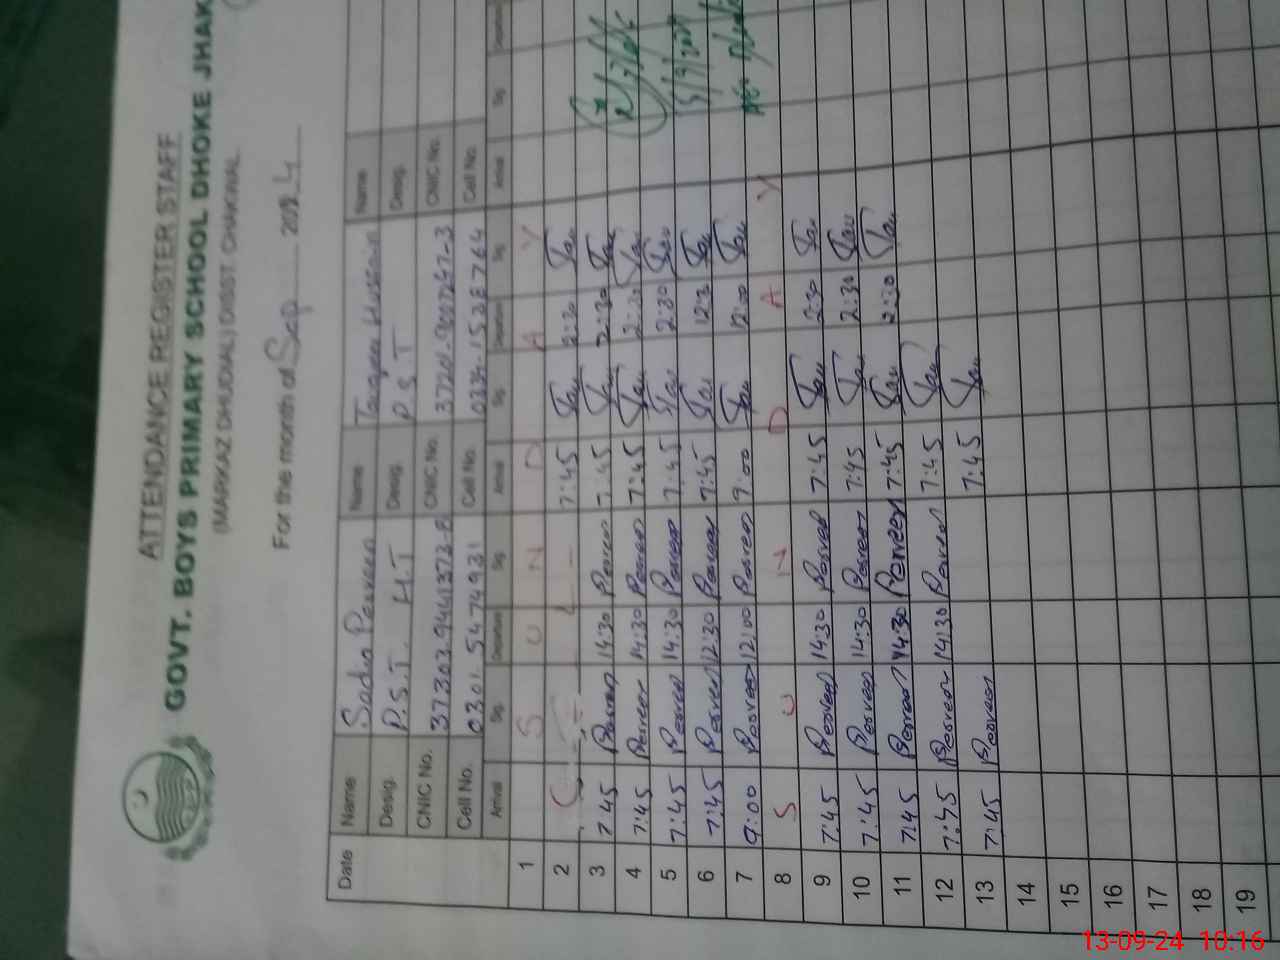 ATTENDANCE REGISTER STAFF
GOVT. BOYS PRIMARY SCHOOL DHOKE JHAK
(MARKAZ DHUDIAL) DISTT. CHAKWAL
For the month of Sep 2024
Date Name Sadia Parveen Name Tauqeer Hussain Name
Desig. P.S.T. H.T Desig. P.S.T Desig.
CNIC No. CNIC No. CNIC No.
Cell No. 0301.5474931 Cell No. 0334-1528764 Cell No.
Arrival Sig. Departure Sig. Arrival Sig. Departure Sig. Arrival Sig. Departure
1 S U N D A Y
2 C L 7:45 Tau 2:30 Tau
3 7:45 Parveen 14:30 Parveen 7:45 Tau 2:30 Tau
4 7:45 Parveen 14:30 Parveen 7:45 Tau 2:30 Tau
5 7:45 Parveen 14:30 Parveen 7:45 Tau 2:30 Tau
6 7:45 Parveen 12:30 Parveen 7:45 Tau 12:30 Tau
7 9:00 Parveen 12:00 Parveen 9:00 Tau 12:00 Tau
8 S U N D A Y
9 7:45 Parveen 14:30 Parveen 7:45 Tau 2:30 Tau
10 7:45 Parveen 14:30 Parveen 7:45 Tau 2:30 Tau
11 7:45 Parveen 14:30 Parveen 7:45 Tau 2:30 Tau
12 7:45 Parveen 14:30 Parveen 7:45 Tau
13 7:45 Parveen 7:45 Tau
14
15
16
17
18
19
13-09-24 10:16